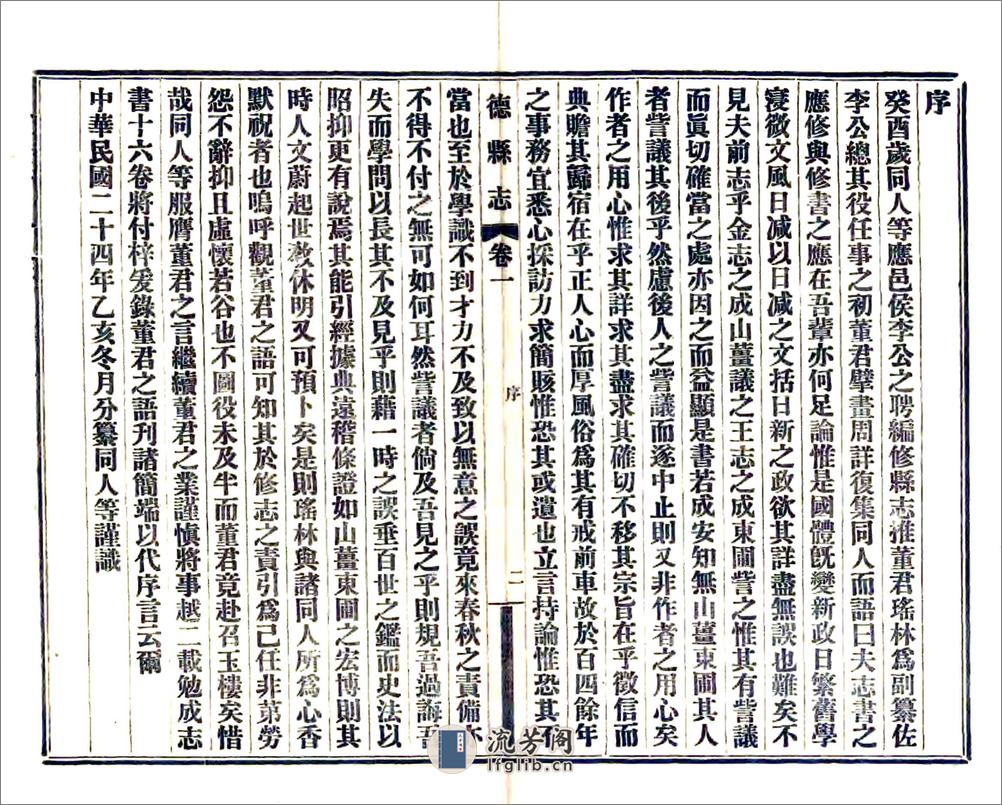 序
癸酉歲同人等應邑侯李公之聘編修縣志推董君瑤林爲副纂佐
李公總其役任事之初董君擘畫周詳復集同人而語曰夫志書之
應修與修書之應在吾輩亦何足論惟是國體旣變新政日繁舊學
寖微文風日減以日減之文括日新之政欲其詳盡無誤也難矣不
見夫前志乎金志之成山薑議之王志之成東圃訾之惟其有訾議
而眞切確當之處亦因之而益顯是書若成安知無山薑東圃其人
者訾議其後乎然慮後人之訾議而遂中止則又非作者之用心矣
作者之用心惟求其詳求其盡求其確切不移其宗旨在乎徵信而
典贍其歸宿在乎正人心而厚風俗爲其有戒前車故於百四餘年
之事務宜悉心採訪力求簡賅惟恐其或遺也立言持論惟恐其不
德縣志
卷一
序
二
當也至於學識不到才力不及致以無意之誤竟來春秋之責備亦
不得不付之無可如何耳然訾議者倘及吾見之乎則規吾過誨吾
失而學問以長其不及見乎則藉一時之誤垂百世之鑑而史法以
昭抑更有說焉其能引經據典遠稽條證如山薑東圃之宏博則其
時人文蔚起世教休明又可預卜矣是則瑤林與諸同人所爲心香
默祝者也嗚呼觀董君之語可知其於修志之責引爲己任非第勞
怨不辭抑且虛懷若谷也不圖役未及半而董君竟赴召玉樓矣惜
哉同人等服膺董君之言繼續董君之業謹愼將事越二載勉成志
書十六卷將付梓爰錄董君之語刊諸簡端以代序言云爾
中華民國二十四年乙亥冬月分纂同人等謹識
流芳阁
lfglib.cn